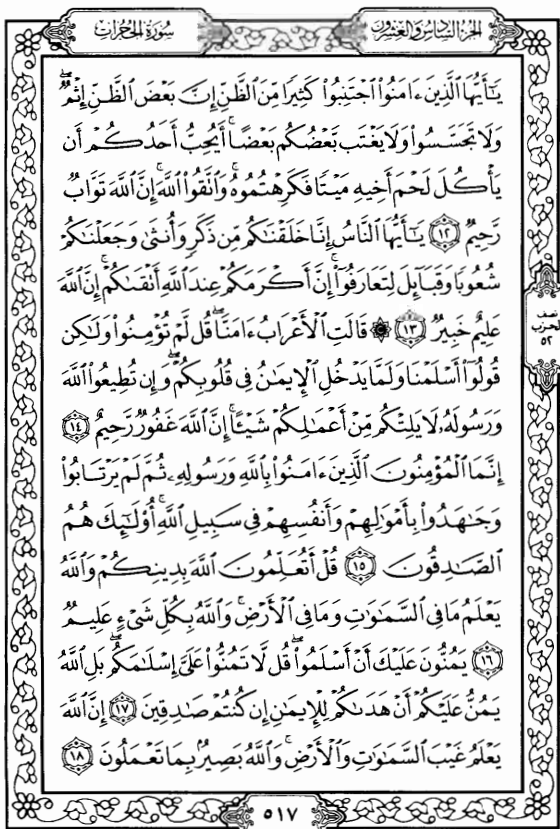 سُورَةُ الحُجُرَاتِ
الجُزْءُ السَّادِسُ وَالعِشْرُونَ
يَٰٓأَيُّهَا ٱلَّذِينَ ءَامَنُوا۟ ٱجْتَنِبُوا۟ كَثِيرًا مِّنَ ٱلظَّنِّ إِنَّ بَعْضَ ٱلظَّنِّ إِثْمٌۖ
وَلَا تَجَسَّسُوا۟ وَلَا يَغْتَب بَّعْضُكُم بَعْضًاۚ أَيُحِبُّ أَحَدُكُمْ أَن
يَأْكُلَ لَحْمَ أَخِيهِ مَيْتًا فَكَرِهْتُمُوهُۚ وَٱتَّقُوا۟ ٱللَّهَۚ إِنَّ ٱللَّهَ تَوَّابٌ
رَّحِيمٌ ۝١٢ يَٰٓأَيُّهَا ٱلنَّاسُ إِنَّا خَلَقْنَٰكُم مِّن ذَكَرٍ وَأُنثَىٰ وَجَعَلْنَٰكُمْ
شُعُوبًا وَقَبَآئِلَ لِتَعَارَفُوٓا۟ۚ إِنَّ أَكْرَمَكُمْ عِندَ ٱللَّهِ أَتْقَىٰكُمْۚ إِنَّ ٱللَّهَ
عَلِيمٌ خَبِيرٌ ۝١٣ ۞ قَالَتِ ٱلْأَعْرَابُ ءَامَنَّاۖ قُل لَّمْ تُؤْمِنُوا۟ وَلَٰكِن
قُولُوٓا۟ أَسْلَمْنَا وَلَمَّا يَدْخُلِ ٱلْإِيمَٰنُ فِى قُلُوبِكُمْۖ وَإِن تُطِيعُوا۟ ٱللَّهَ
وَرَسُولَهُۥ لَا يَلِتْكُم مِّنْ أَعْمَٰلِكُمْ شَيْـًٔاۚ إِنَّ ٱللَّهَ غَفُورٌ رَّحِيمٌ ۝١٤
إِنَّمَا ٱلْمُؤْمِنُونَ ٱلَّذِينَ ءَامَنُوا۟ بِٱللَّهِ وَرَسُولِهِۦ ثُمَّ لَمْ يَرْتَابُوا۟
وَجَٰهَدُوا۟ بِأَمْوَٰلِهِمْ وَأَنفُسِهِمْ فِى سَبِيلِ ٱللَّهِۚ أُو۟لَٰٓئِكَ هُمُ
ٱلصَّٰدِقُونَ ۝١٥ قُلْ أَتُعَلِّمُونَ ٱللَّهَ بِدِينِكُمْ وَٱللَّهُ
يَعْلَمُ مَا فِى ٱلسَّمَٰوَٰتِ وَمَا فِى ٱلْأَرْضِۚ وَٱللَّهُ بِكُلِّ شَىْءٍ عَلِيمٌ
۝١٦ يَمُنُّونَ عَلَيْكَ أَنْ أَسْلَمُوا۟ۖ قُل لَّا تَمُنُّوا۟ عَلَىَّ إِسْلَٰمَكُمۖ بَلِ ٱللَّهُ
يَمُنُّ عَلَيْكُمْ أَنْ هَدَىٰكُمْ لِلْإِيمَٰنِ إِن كُنتُمْ صَٰدِقِينَ ۝١٧ إِنَّ ٱللَّهَ
يَعْلَمُ غَيْبَ ٱلسَّمَٰوَٰتِ وَٱلْأَرْضِۚ وَٱللَّهُ بَصِيرٌۢ بِمَا تَعْمَلُونَ ۝١٨
نصف
الحزب
٥٢
٥١٧